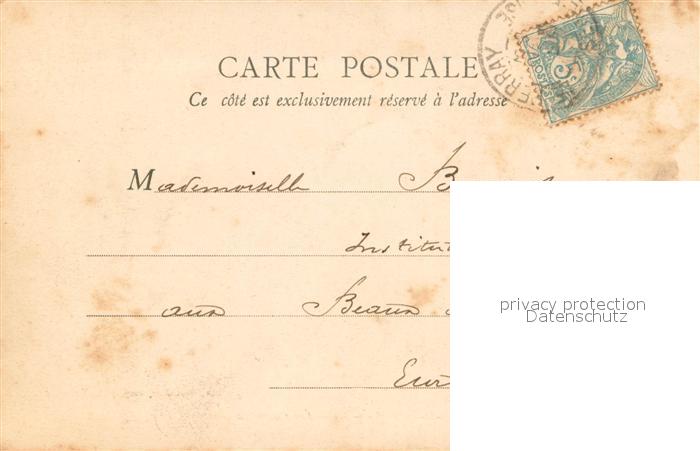 CARTE POSTALE
Ce côté est exclusivement réservé à l'adresse
Mademoiselle
Institut
aux Beaux
privacy protection
Datenschutz